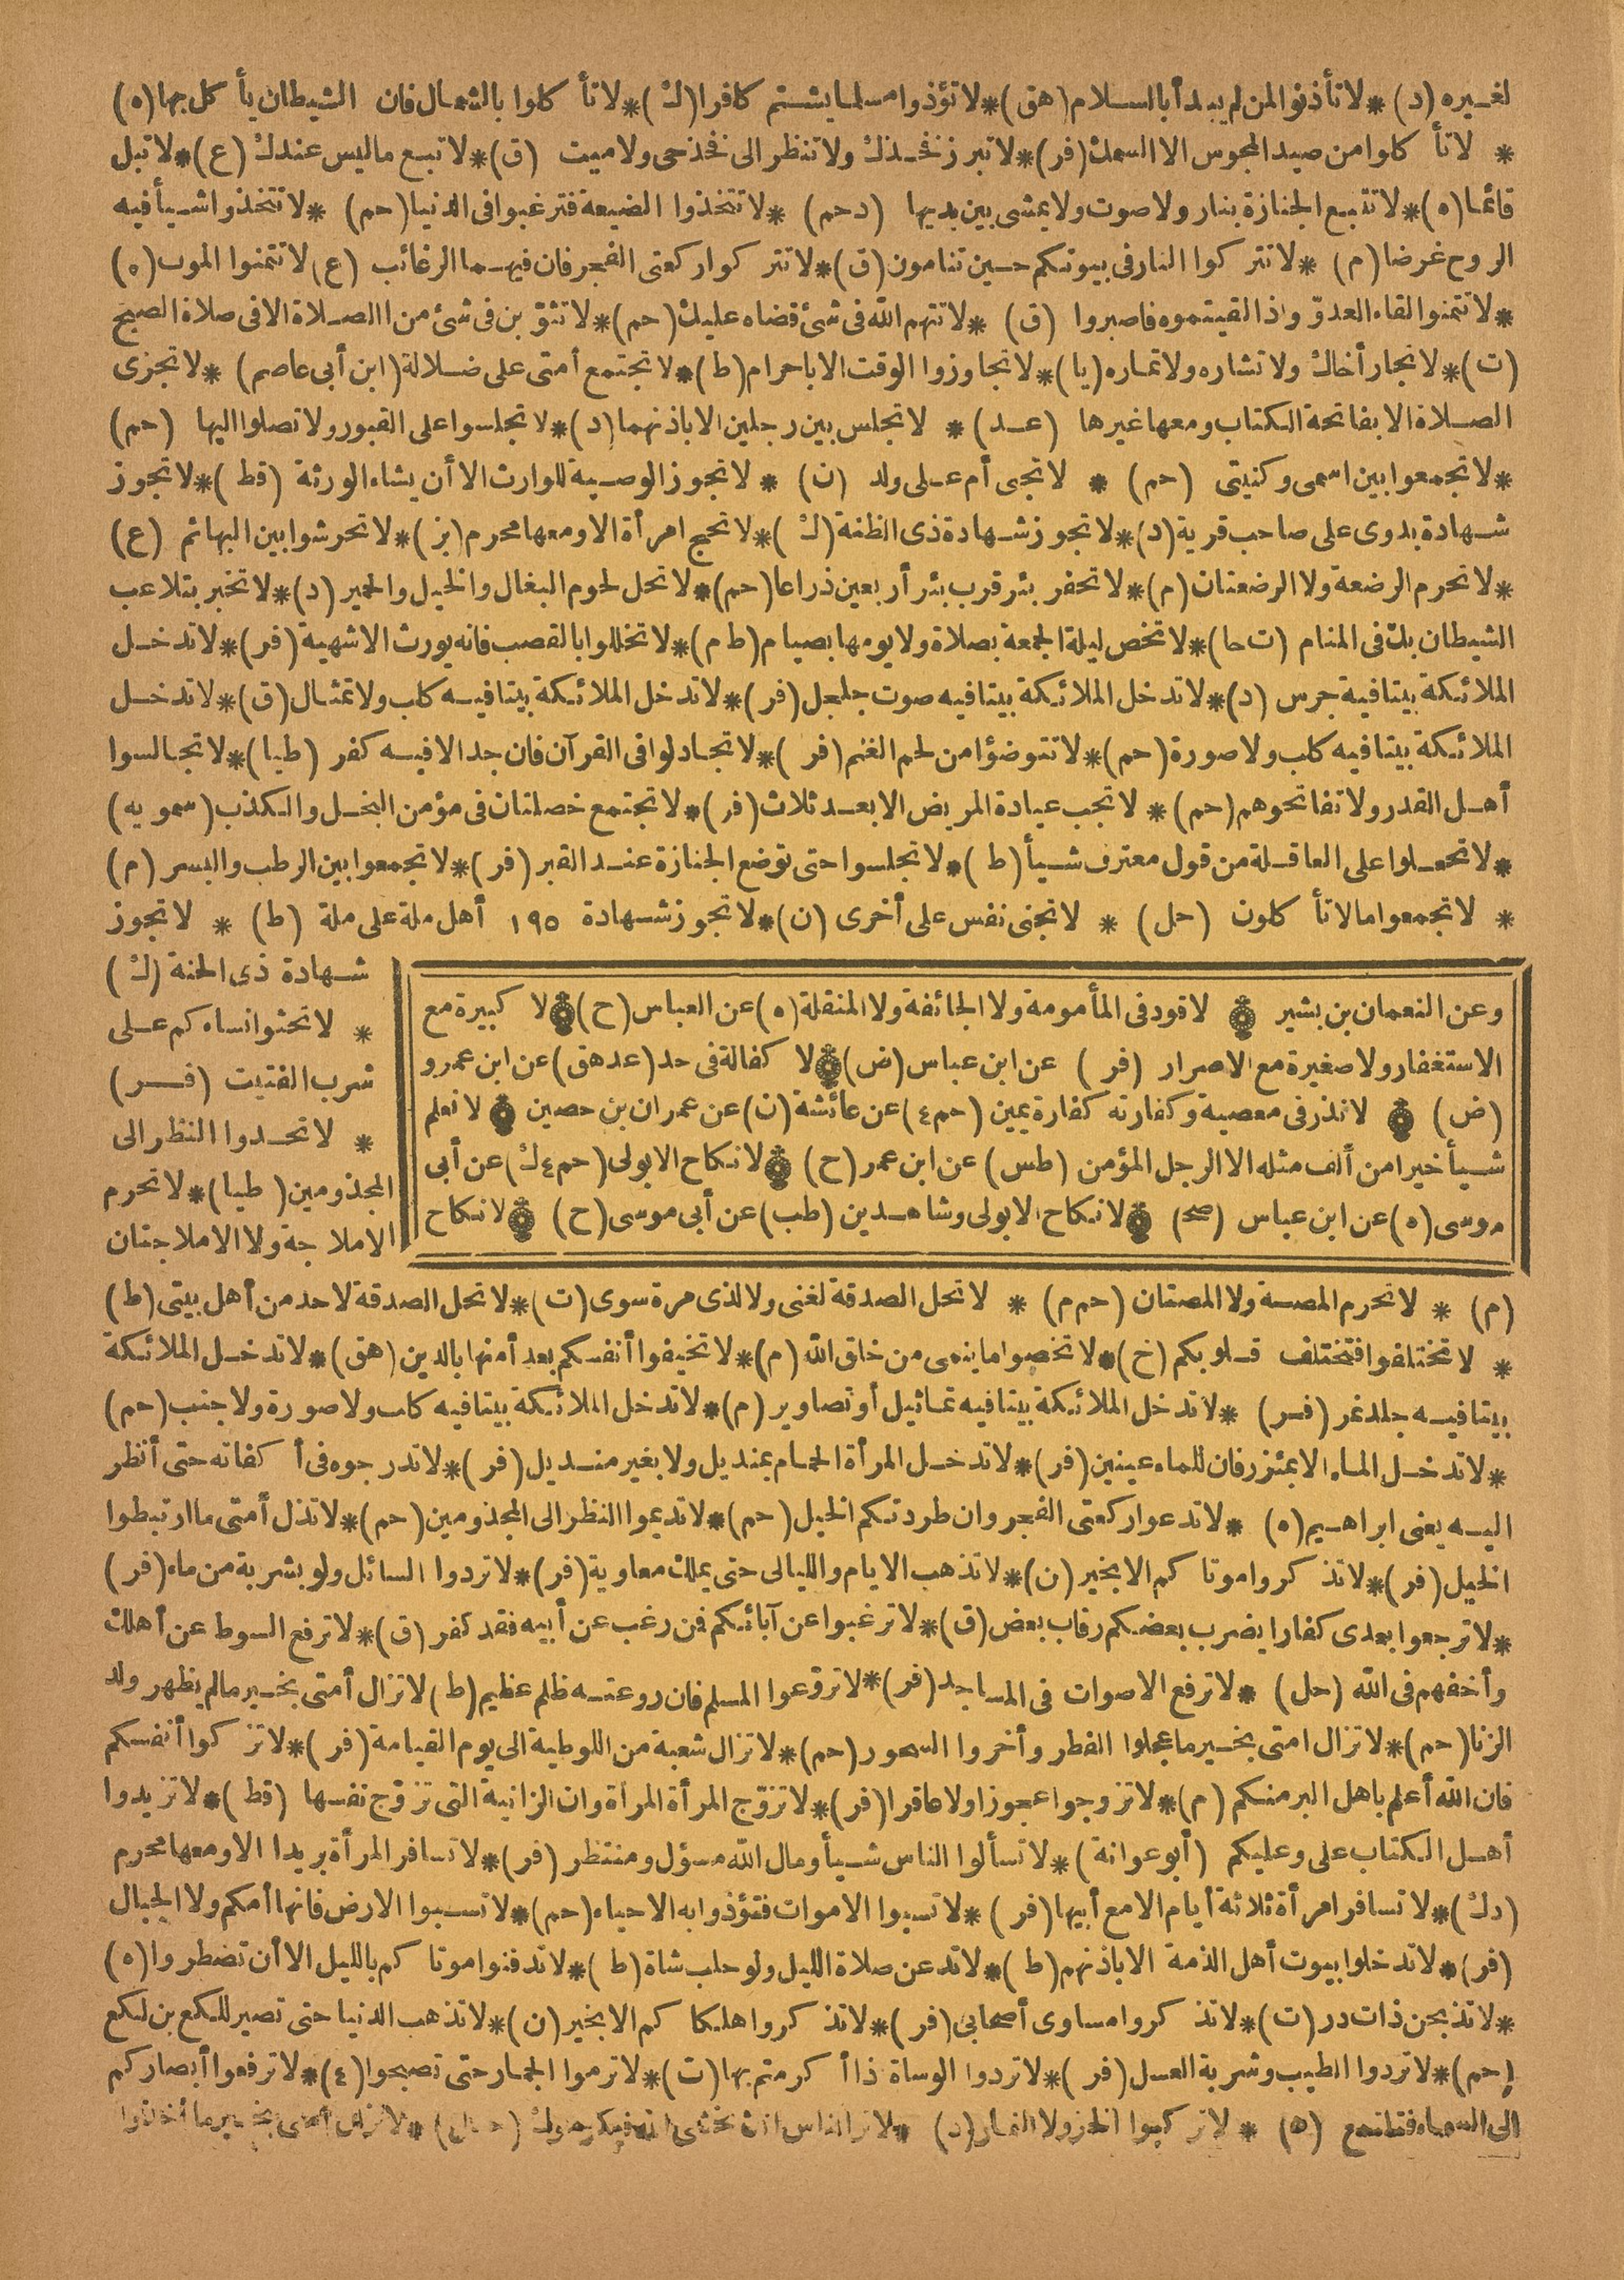 لغيره (د) * لا تأذنوا لمن لم يبدأ بالسلام (هق) * لا تؤذوا مسلما بشتم كافرا (ك) * لا تأكلوا بالشمال فان الشيطان يأكل بها (ه)
* لا تأكلوا من صيد المجوس الا السمك (فر) * لا تبرز فخذك ولا تنظر الى فخذ حى ولا ميت (ق) * لا تبع ما ليس عندك (ع) * لا تبل
قائما (ه) * لا تتبع الجنازة بنار ولا صوت ولا يمشى بين يديها (د حم) * لا تتخذوا الضيعة فترغبوا فى الدنيا (حم) * لا تتخذوا شيأ فيه
الروح غرضا (م) * لا تتركوا النار فى بيوتكم حين تنامون (ق) * لا تتركوا ركعتى الفجر فان فيهما الرغائب (ع) لا تتمنوا الموت (ه)
* لا تتمنوا لقاء العدوّ واذا لقيتموه فاصبروا (ق) * لا تتهم الله فى شئ قضاه عليك (حم) * لا تثوّبن فى شئ من الصلاة الا فى صلاة الصبح
(ت) * لا تجار أخاك ولا تشاره ولا تماره (يا) * لا تجاوزوا الوقت الا باحرام (ط) * لا تجتمع أمتى على ضلالة (ابن أبى عاصم) * لا تجزى
الصلاة الا بفاتحة الكتاب ومعها غيرها (عد) * لا تجلس بين رجلين الا باذنهما (د) * لا تجلسوا على القبور ولا تصلوا اليها (حم)
* لا تجمعوا بين اسمى وكنيتى (حم) * لا تجنى أم على ولد (ن) * لا تجوز الوصية للوارث الا أن يشاء الورثة (قط) * لا تجوز
شهادة بدوى على صاحب قرية (د) * لا تجوز شهادة ذى الظنة (ك) * لا تحج امرأة الا ومعها محرم (بز) * لا تحرشوا بين البهائم (ع)
* لا تحرم الرضعة ولا الرضعتان (م) * لا تحفر بئر قرب بئر أربعين ذراعا (حم) * لا تحل لحوم البغال والخيل والحمير (د) * لا تخبر بتلاعب
الشيطان بك فى المنام (ت حا) * لا تخص ليلة الجمعة بصلاة ولا يومها بصيام (ط م) * لا تخللوا بالقصب فانه يورث الاشهية (فر) * لا تدخل
الملائكة بيتا فية جرس (د) * لا تدخل الملائكة بيتا فيه صوت جلجل (فر) * لا تدخل الملائكة بيتا فيه كلب ولا تمثال (ق) * لا تدخل
الملائكة بيتا فيه كلب ولا صورة (حم) * لا تتوضؤا من لحم الغنم (فر) * لا تجادلوا فى القرآن فان جدالا فيه كفر (طيا) * لا تجالسوا
أهل القدر ولا تفاتحوهم (حم) * لا تجب عيادة المريض الا بعد ثلاث (فر) * لا تجتمع خصلتان فى مؤمن البخل والكذب (سمويه)
* لا تجعلوا على العاقلة من قول معترف شيأ (ط) * لا تجلسوا حتى توضع الجنازة عند القبر (فر) * لا تجمعوا بين الرطب والبسر (م)
* لا تجمعوا ما لا تأكلون (حل) * لا تجنى نفس على أخرى (ن) * لا تجوز شهادة ١٩٥ أهل ملة على ملة (ط) * لا تجوز
شهادة ذى الحنة (ك)
* لا تحثوا نساءكم على
شرب الفتيت (فر)
* لا تحدوا النظر الى
المجذومين (طيا) * لا تحرم
الاملاجة ولا الاملاجتان
وعن النعمان بن بشير لا قود فى المأمومة ولا الجائفة ولا المنقلة (ه) عن العباس (ح) لا كبيرة مع
الاستغفار ولا صغيرة مع الاصرار (فر) عن ابن عباس (ض) لا كفالة فى حد (عد هق) عن ابن عمرو
(ض) لا نذر فى معصية وكفارته كفارة يمين (حم ٤) عن عائشة (ن) عن عمران بن حصين لا نعلم
شيأ خيرا من ألف مثله الا الرجل المؤمن (طس) عن ابن عمر (ح) لا نكاح الا بولى (حم ٤ ك) عن أبى
موسى (ه) عن ابن عباس (صح) لا نكاح الا بولى وشاهدين (طب) عن أبى موسى (ح) لا نكاح
(م) * لا تحرم المصة ولا المصتان (حم م) * لا تحل الصدقة لغنى ولا لذى مرة سوى (ت) * لا تحل الصدقة لاحد من أهل بيتى (ط)
* لا تختلفوا فتختلف قلوبكم (خ) * لا تخصوا ما ينمى من خلق الله (م) * لا تخيفوا أنفسكم بعد أمنها بالدين (هق) * لا تدخل الملائكة
بيتا فيه جلد نمر (فر) * لا تدخل الملائكة بيتا فيه تماثيل أو تصاوير (م) * لا تدخل الملائكة بيتا فيه كلب ولا صورة ولا جنب (حم)
* لا تدخل الماء الا بمئزر فان للماء عينين (فر) * لا تدخل المرأة الحمام بمنديل ولا بغير منديل (فر) * لا تدرجوه فى أكفانه حتى أنظر
اليه يعنى ابراهيم (ه) * لا تدعوا ركعتى الفجر وان طردتكم الخيل (حم) * لا تديموا النظر الى المجذومين (حم) * لا تذل أمتى ما ارتبطوا
الخيل (فر) * لا تذكروا موتاكم الا بخير (ن) * لا تذهب الايام والليالى حتى يملك معاوية (فر) * لا تردوا السائل ولو بشربة من ماء (فر)
* لا ترجعوا بعدى كفارا يضرب بعضكم رقاب بعض (ق) * لا ترغبوا عن آبائكم فمن رغب عن أبيه فقد كفر (ق) * لا ترفع السوط عن أهلك
وأخفهم فى الله (حل) * لا ترفع الاصوات فى المساجد (فر) * لا تروّعوا المسلم فان روعته ظلم عظيم (ط) لا تزال أمتى بخير ما لم يظهر ولد
الزنا (حم) * لا تزال امتى بخير ما عجلوا الفطر وأخروا السحور (حم) * لا تزال شعبة من اللوطية الى يوم القيامة (فر) * لا تزكوا أنفسكم
فان الله أعلم باهل البر منكم (م) * لا تزوجوا عجوزا ولا عاقرا (فر) * لا تزوّج المرأة المرأة وان الزانية التى تزوّج نفسها (قط) * لا تزيدوا
أهل الكتاب على وعليكم (أبو عوانة) * لا تسألوا الناس شيأ ومال الله مسؤل ومنتظر (فر) * لا تسافر المرأة بريدا الا ومعها محرم
(د ك) * لا تسافر امرأة ثلاثة أيام الا مع أبيها (فر) * لا تسبوا الاموات فتؤذوا به الاحياء (حم) * لا تسبوا الارض فانها أمكم ولا الجبال
(فر) * لا تدخلوا بيوت أهل الذمة الا باذنهم (ط) * لا تدعن صلاة الليل ولو حلب شاة (ط) * لا تدفنوا موتاكم بالليل الا أن تضطروا (ه)
* لا تذبحن ذات در (ت) * لا تذكروا مساوى أصحابى (فر) * لا تذكروا هلكاكم الا بخير (ن) * لا تذهب الدنيا حتى تصير للكع بن لكع
(حم) * لا تردوا الطيب وشربة العسل (فر) * لا تردوا الوسادة اذا أكرمتم بها (ت) * لا ترموا الجمار حتى تصبحوا (٤) * لا ترفعوا أبصاركم
الى السماء فتلتمع (ه) * لا تركبوا الخز ولا النمار (د)